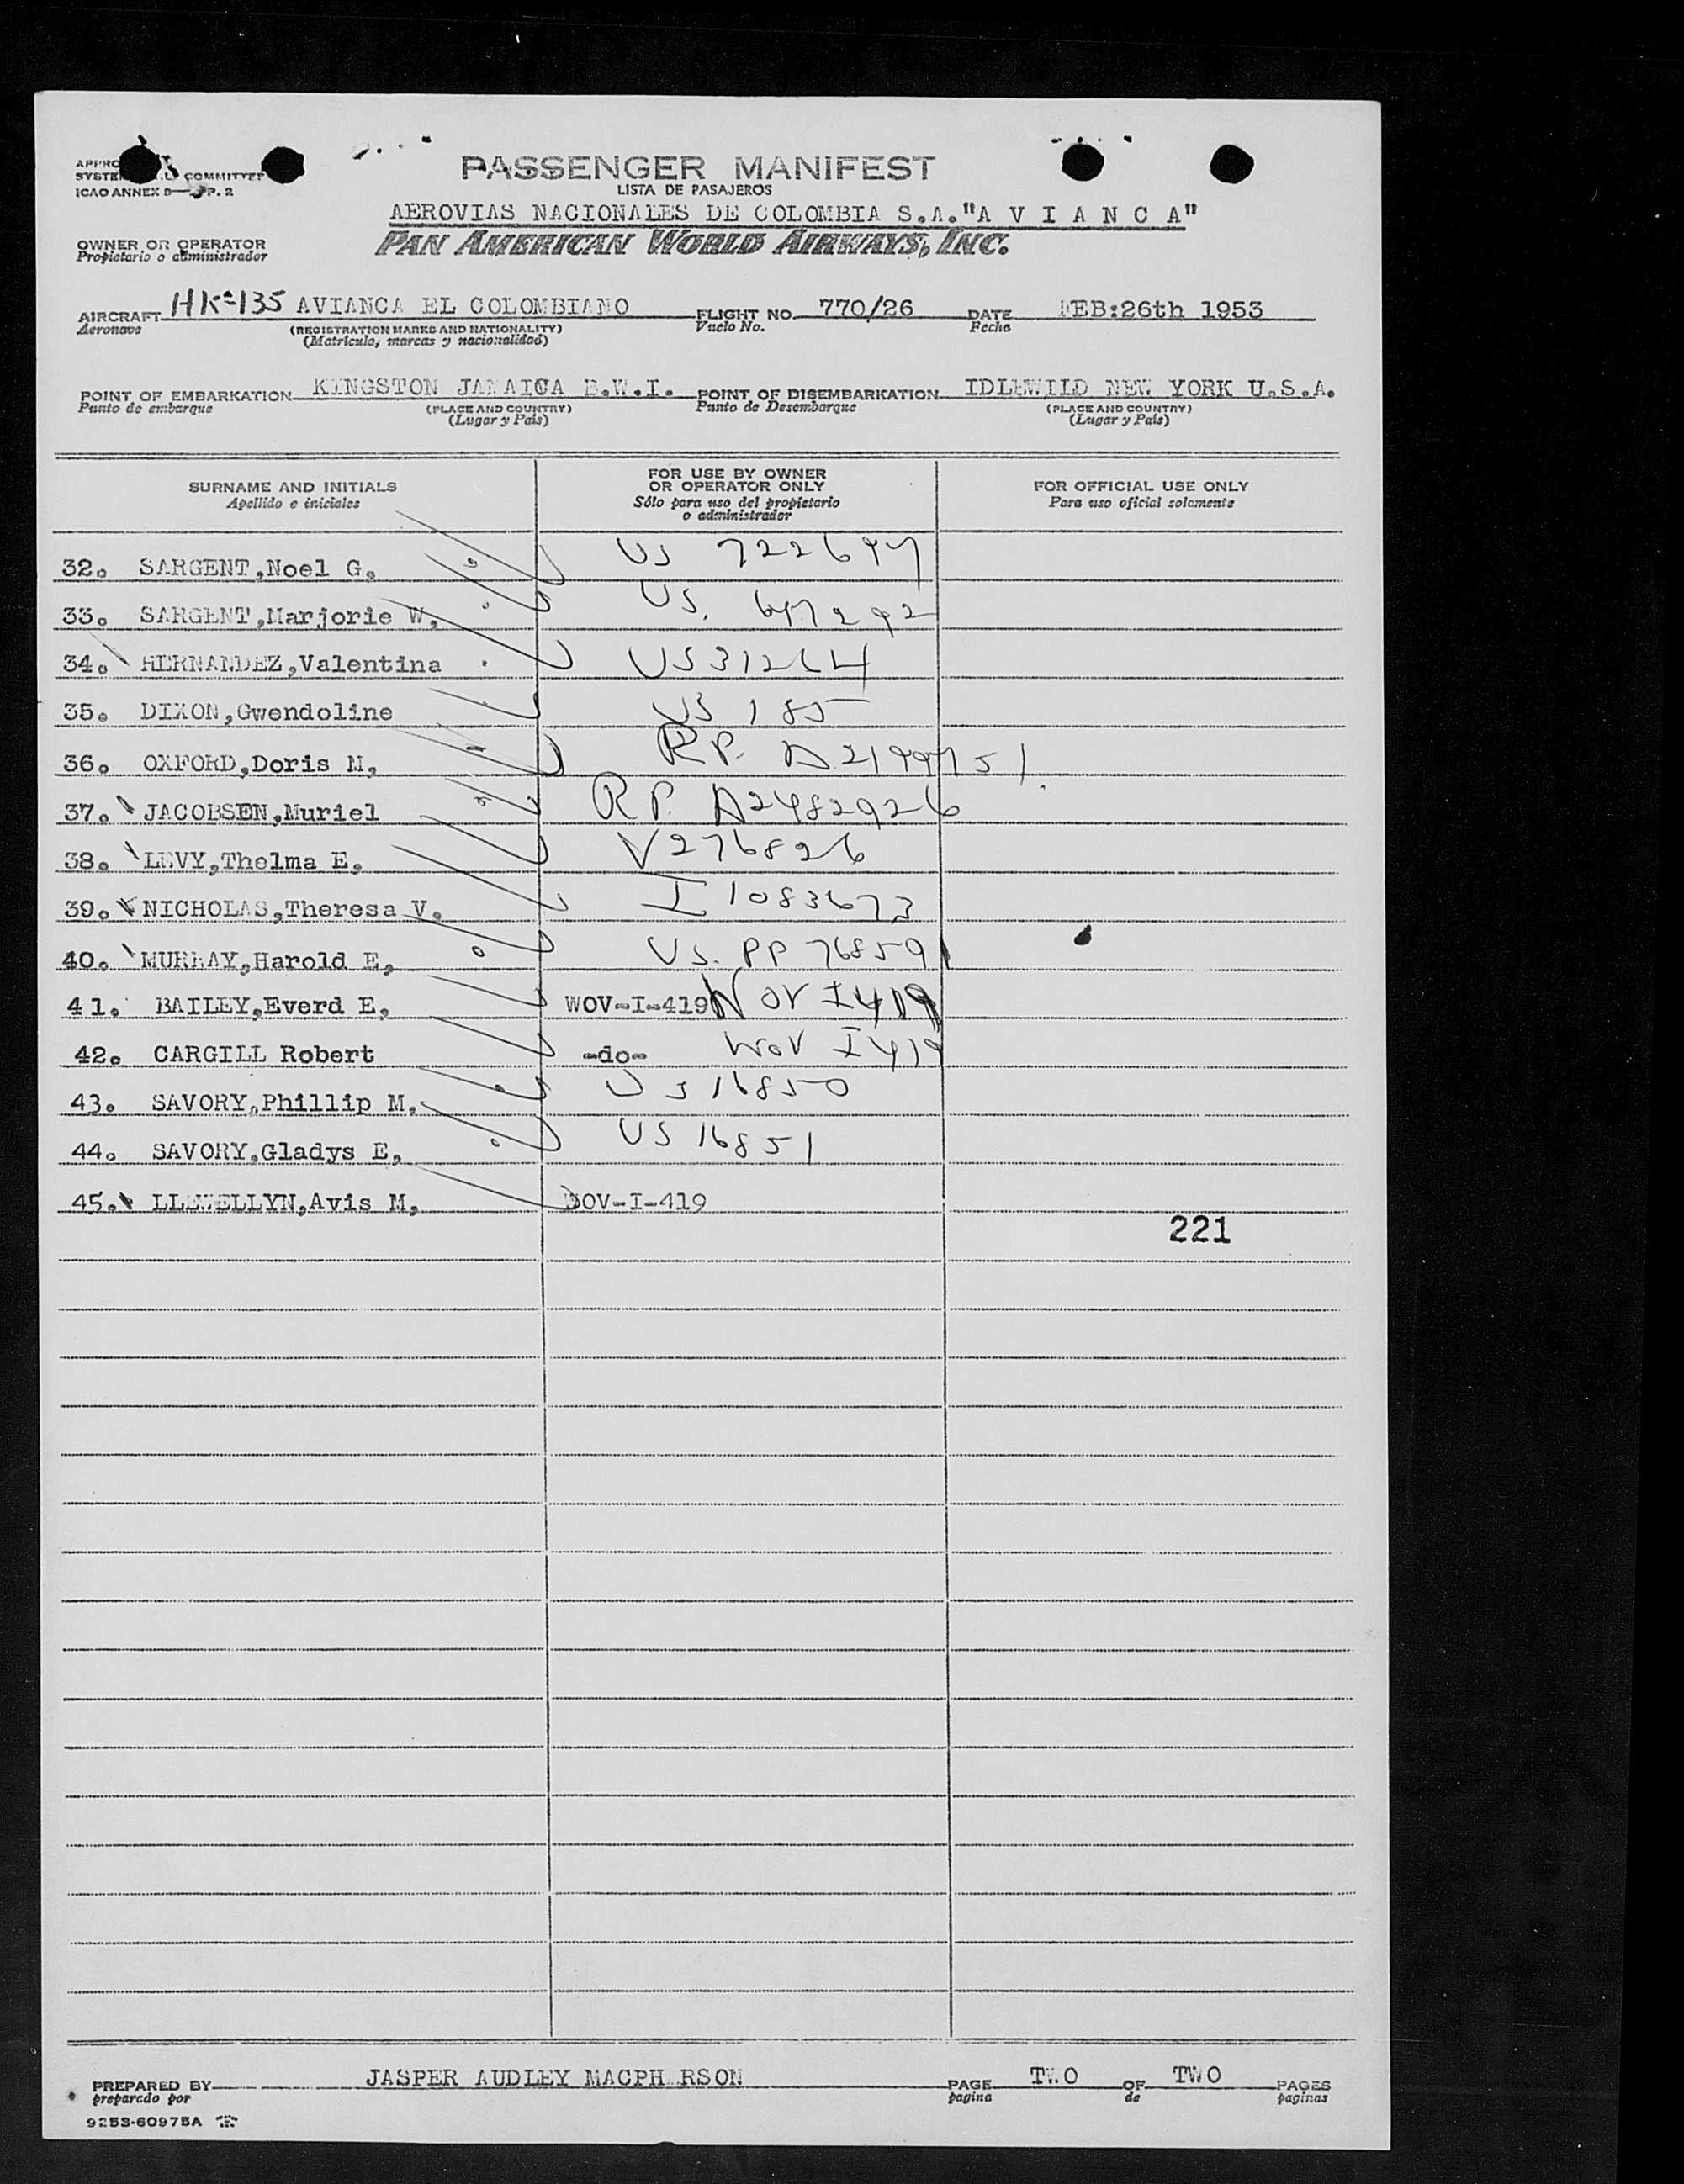 PASSENGER MANIFEST
LISTA DE PASAJEROS
COMMITTEE
ICAO ANNEX 9 P. 2
AEROVIAS NACIONALES DE COLOMBIA S.A."A V I A N C A"
OWNER OR OPERATOR
Propietario o administrador
PAN AMERICAN WORLD AIRWAYS, INC.
AIRCRAFT HK-135 AVIANCA EL COLOMBIANO FLIGHT NO. 770/26 DATE FEB:26th 1953
Aeronave (REGISTRATION MARKS AND NATIONALITY) Vuelo No. Fecha
(Matricula, marcas y nacionalidad)
POINT OF EMBARKATION KINGSTON JAMAICA B.W.I. POINT OF DISEMBARKATION IDLEWILD NEW YORK U.S.A.
Punto de embarque (PLACE AND COUNTRY) Punto de Desembarque (PLACE AND COUNTRY)
(Lugar y País) (Lugar y País)
SURNAME AND INITIALS
Apellido e iniciales
FOR USE BY OWNER
OR OPERATOR ONLY
Sólo para uso del propietario
o administrador
FOR OFFICIAL USE ONLY
Para uso oficial solamente
32. SARGENT,Noel G, US
33. SARGENT,Marjorie W, US.
34. HERNANDEZ,Valentina
35. DIXON,Gwendoline US 185
36. OXFORD,Doris M, RP.
37. JACOBSEN,Muriel RP. A2482926
38. LEVY,Thelma E, V276826
39. NICHOLAS,Theresa V, I 1083673
40. MURRAY,Harold E, US. PP 76859
41. BAILEY,Everd E, WOV-I-419 WOV I 419
42. CARGILL Robert -do- WOV I 419
43. SAVORY,Phillip M, US 16850
44. SAVORY,Gladys E, US 16851
45. LLEWELLYN,Avis M, WOV-I-419
221
PREPARED BY JASPER AUDLEY MACPH RSON PAGE TWO OF TWO PAGES
preparado por pagina de paginas
9253-60975A